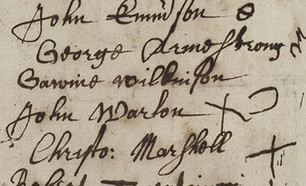 John Emmson
George Armestrong
Gawine wilkinson
John Warlon
Christo: Marshell
Robert